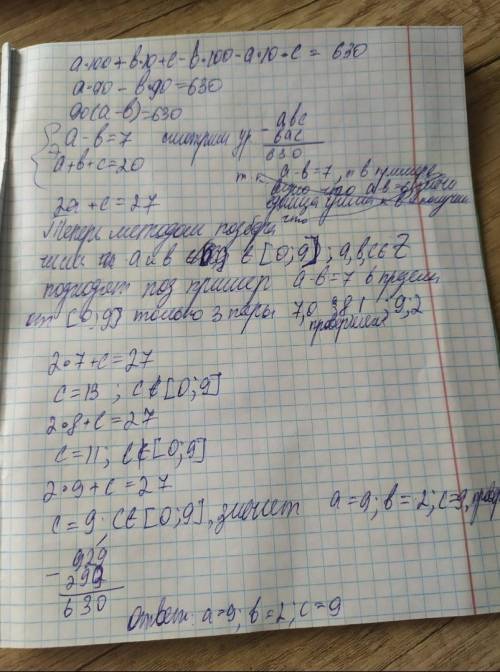 a·100+b·10+c-b·100-a·10+c = 630
a·90-b·90=630
90(a-b)=630
a-b=7 смотрим ур
a+b+c=20
- abc
bac
630
a-b=7, и в примере
2a + c = 27
Теперь методом подбора
что
числа a и b [0;9]; a,b,c∈Z
подходят под пример a-b=7 в пределе
от [0;9] только 3 пары 7,0 8,1 9,2
проверим
2·7+c=27
c=13; c∉[0;9]
2·8+c=27
c=11; c∉[0;9]
2·9+c=27
c=9 c∈[0;9], значит a=9; b=2; c=9,
- 929
299
630
ответ: a=9; b=2; c=9